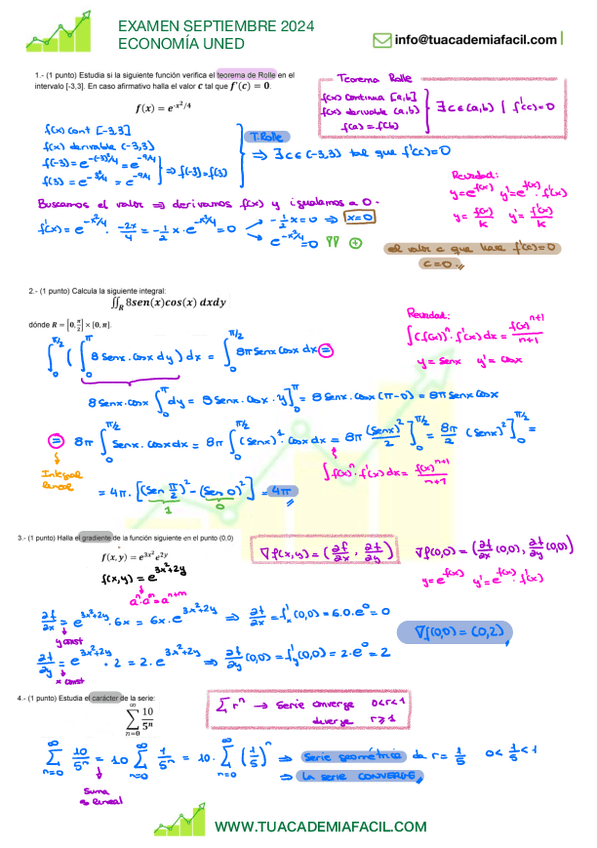 EXAMEN SEPTIEMBRE 2024
ECONOMÍA UNED
info@tuacademiafacil.com
1.- (1 punto) Estudia si la siguiente función verifica el teorema de Rolle en el
intervalo [-3,3]. En caso afirmativo halla el valor c tal que f'(c) = 0.
f(x) = e^{-x²/4}
Teorema Rolle
f(x) continua [a,b]
f(x) derivable (a,b)
f(a) = f(b)
∃ c ∈ (a,b) | f'(c)=0
f(x) cont [-3,3]
f(x) derivable (-3,3)
f(-3) = e^{-(-3)²/4} = e^{-9/4}
f(3) = e^{-3²/4} = e^{-9/4}
⇒ f(-3) = f(3)
T. Rolle
⇒ ∃ c ∈ (-3,3) tal que f'(c)=0
Buscamos el valor ⇒ derivamos f(x) y igualamos a 0.
f'(x) = e^{-x²/4} · -2x/4 = -1/2 x · e^{-x²/4} = 0
-1/2 x = 0 ⇒ x=0
e^{-x²/4} = 0
Recordad:
y = e^{f(x)} y' = e^{f(x)} · f'(x)
y = f(x)/k y' = f'(x)/k
el valor c que hace f'(c)=0
c=0
2.- (1 punto) Calcula la siguiente integral:
∬_R 8sen(x)cos(x) dxdy
dónde R = [0, π/2] × [0, π].
Recordad:
∫ (f(x))^n · f'(x) dx = f(x)^{n+1}/n+1
y = senx y' = cosx
∫_0^{π/2} ( ∫_0^π 8 senx · cosx dy ) dx = ∫_0^{π/2} 8π senx cosx dx =
8 senx · cosx ∫_0^π dy = 8 senx · cosx · y]_0^π = 8 senx · cosx (π-0) = 8π senx cosx
= 8π ∫_0^{π/2} senx · cosx dx = 8π ∫_0^{π/2} (senx)^1 · cosx dx = 8π (senx)²/2 ]_0^{π/2} = 8π/2 (senx)² ]_0^{π/2} =
Integral
lineal
∫ f(x)^n · f'(x) dx = f(x)^{n+1}/n+1
= 4π · [(sen π/2)² - (sen 0)²] = 4π
1 0
3.- (1 punto) Halla el gradiente de la función siguiente en el punto (0,0)
f(x, y) = e^{3x²} e^{2y}
f(x,y) = e^{3x²+2y}
a^n · a^m = a^{n+m}
∇f(x,y) = (∂f/∂x , ∂f/∂y)
∇f(0,0) = (∂f/∂x (0,0), ∂f/∂y (0,0))
y = e^{f(x)} y' = e^{f(x)} · f'(x)
∂f/∂x = e^{3x²+2y} · 6x = 6x · e^{3x²+2y} ⇒ ∂f/∂x = f'x (0,0) = 6·0·e^0 = 0
y const
∂f/∂y = e^{3x²+2y} · 2 = 2 · e^{3x²+2y} ⇒ ∂f/∂y (0,0) = f'y (0,0) = 2·e^0 = 2
x const
∇f(0,0) = (0,2)
4.- (1 punto) Estudia el carácter de la serie:
∑_{n=0}^{∞} 10/5^n
∑ r^n → serie converge 0<r<1
diverge r≥1
∑_{n=0}^{∞} 10/5^n = 10 ∑_{n=0}^{∞} 1/5^n = 10 · ∑_{n=0}^{∞} (1/5)^n ⇒ Serie geométrica de r = 1/5 0 < 1/5 < 1
Suma
es lineal
⇒ La serie CONVERGE
WWW.TUACADEMIAFACIL.COM